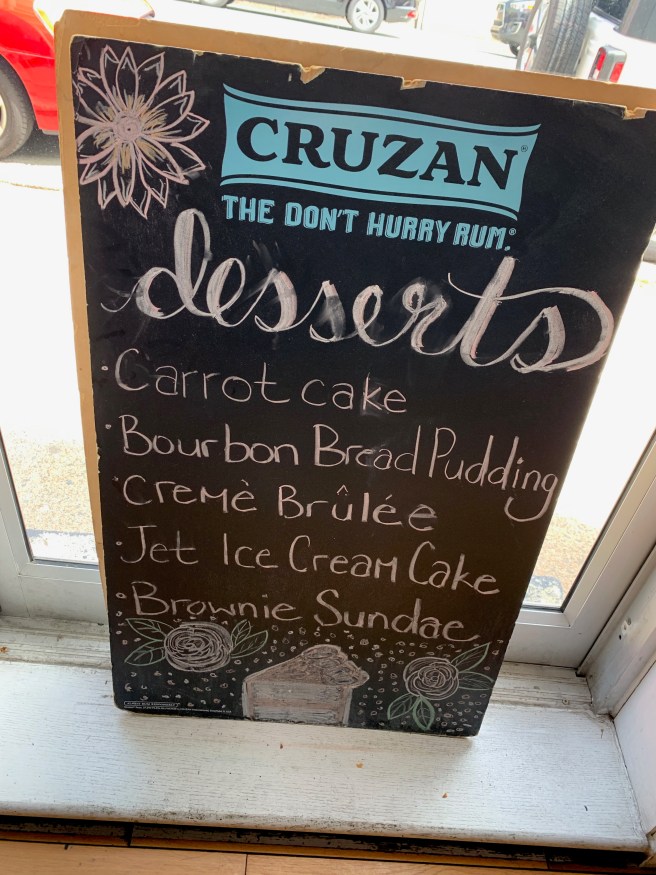 CRUZAN®
THE DON'T HURRY RUM.®
desserts
•Carrot cake
•Bourbon Bread Pudding
•Cremè Brûlée
•Jet Ice Cream Cake
•Brownie Sundae